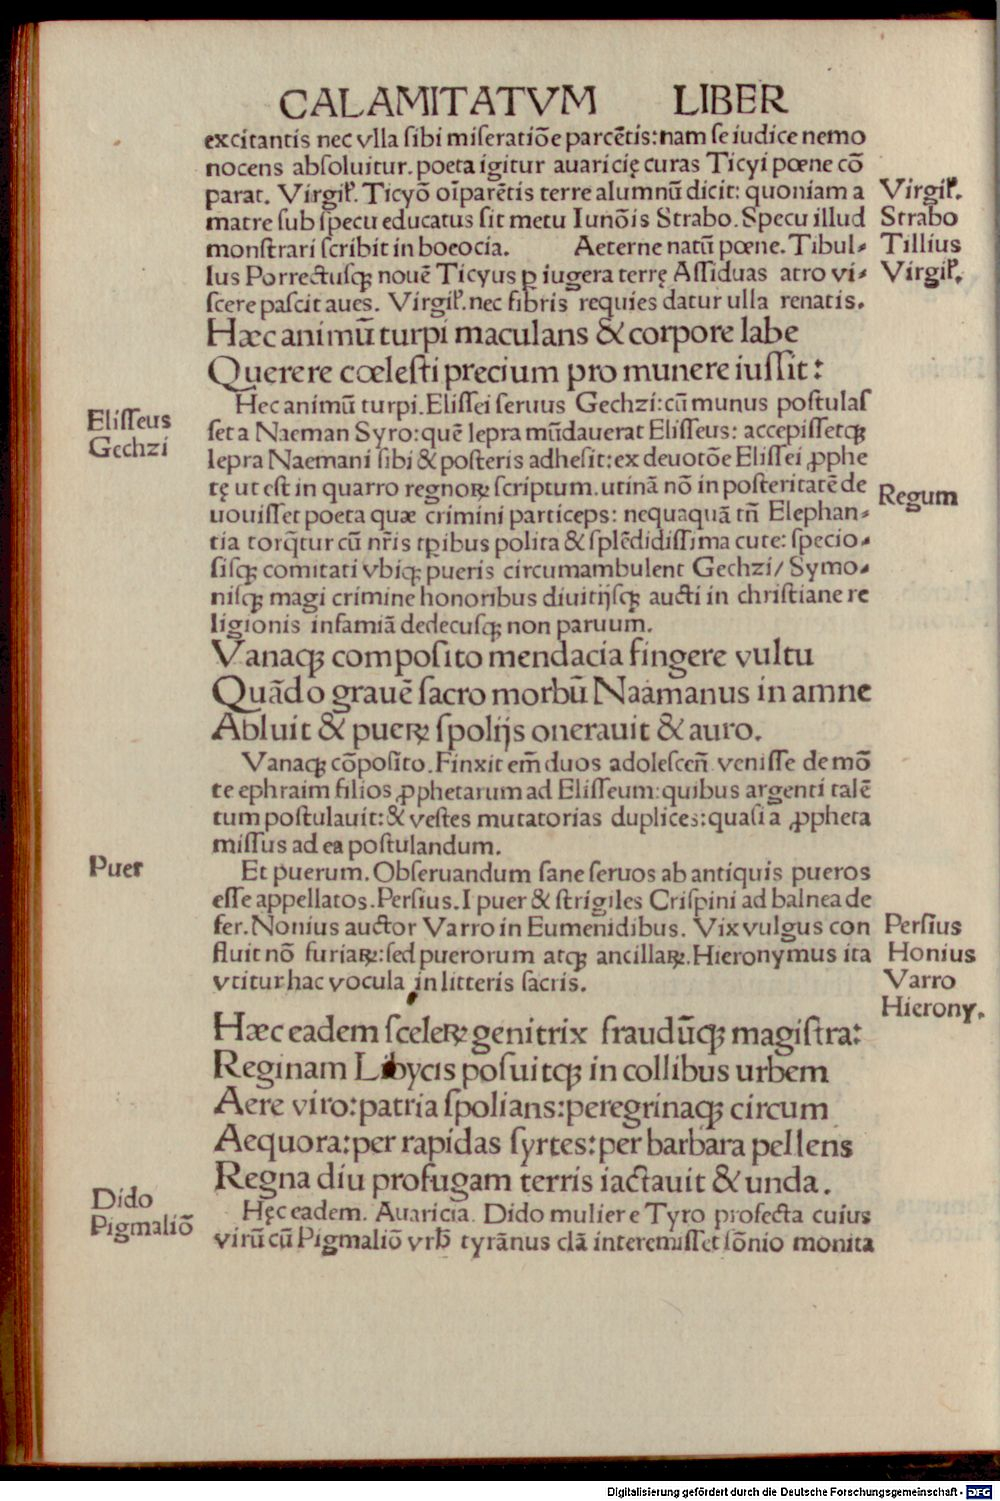 CALAMITATVM LIBER
excitantis nec vlla sibi miseratiōe parcētis: nam se iudice nemo
nocens absoluitur. poeta igitur auaricię curas Ticyi pœne cō
parat. Virgiľ. Ticyō oīparētis terre alumnū dicit: quoniam a
matre sub specu educatus sit metu Iunōis Strabo. Specu illud
monstrari scribit in boeocia. Aeterne natū pœne. Tibul⸗
lus Porrectusqꝫ nouē Ticyus ꝑ iugera terrę Assiduas atro vi⸗
scere pascit aues. Virgiľ. nec fibris requies datur ulla renatis.
Virgiľ.
Strabo
Tillius
Virgiľ.
Hæc animū turpi maculans & corpore labe
Querere cœlesti precium pro munere iussit:
Hec animū turpi. Elissei seruus Gechzi: cū munus postulas
set a Naeman Syro: quē lepra mūdauerat Elisseus: accepissetqꝫ
lepra Naemani sibi & posteris adhesit: ex deuotōe Elissei ꝓphe
tę ut est in quarro regnoꝝ scriptum. utinā nō in posteritatē de
uouisset poeta quæ crimini particeps: nequaquā tn̄ Elephan⸗
tia torq̄tur cū nr̄is tꝑibus polita & splēdidissima cute: specio⸗
sisqꝫ comitati vbiqꝫ pueris circumambulent Gechzi/ Symo⸗
nisqꝫ magi crimine honoribus diuitijsqꝫ aucti in christiane re
ligionis infamiā dedecusqꝫ non paruum.
Elisseus
Gechzi
Regum
Vanaqꝫ composito mendacia fingere vultu
Quādo grauē sacro morbū Naamanus in amne
Abluit & pueꝝ spolijs onerauit & auro.
Vanaqꝫ cōposito. Finxit em̄ duos adolescen̄. venisse de mō
te ephraim filios ꝓphetarum ad Elisseum: quibus argenti talē
tum postulauit: & vestes mutatorias duplices: quasi a ꝓpheta
missus ad ea postulandum.
Et puerum. Obseruandum sane seruos ab antiquis pueros
esse appellatos. Persius. I puer & strigiles Crispini ad balnea de
fer. Nonius auctor Varro in Eumenidibus. Vix vulgus con
fluit nō furiaꝝ: sed puerorum atqꝫ ancillaꝝ. Hieronymus ita
vtitur hac vocula in litteris sacris.
Puer
Persius
Honius
Varro
Hierony.
Hæc eadem sceleꝝ genitrix fraudūqꝫ magistra:
Reginam Libycis posuitqꝫ in collibus urbem
Aere viro: patria spolians: peregrinaqꝫ circum
Aequora: per rapidas syrtes: per barbara pellens
Regna diu profugam terris iactauit & unda.
Hęc eadem. Auaricia. Dido muliere Tyro profecta cuius
virū cū Pigmaliō vrb̄ tyrānus clā interemisset sōnio monita
Dido
Pigmaliō
Digitalisierung gefördert durch die Deutsche Forschungsgemeinschaft - DFG